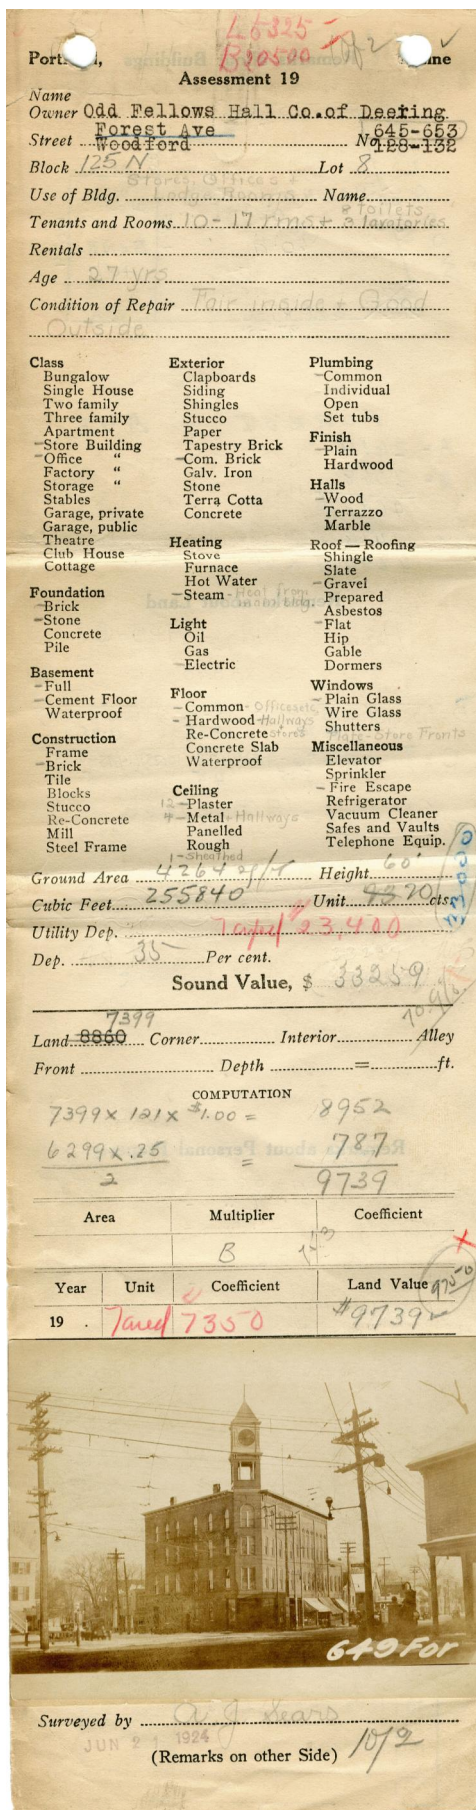 L6325
B20500
Portland, Maine
Assessment 19
Name
Owner Odd Fellows Hall Co. of Deering
Forest Ave 645-653
Street Woodford No. 128-132
Block 125 N Lot 8
Stores, Offices +
Use of Bldg. Lodge Rooms Name
8 toilets
Tenants and Rooms 10-17 rms + 3 lavatories
Rentals
Age 27 yrs
Condition of Repair Fair inside + Good
Outside
Class
Bungalow
Single House
Two family
Three family
Apartment
-Store Building
-Office "
Factory "
Storage "
Stables
Garage, private
Garage, public
Theatre
Club House
Cottage
Foundation
-Brick
-Stone
Concrete
Pile
Basement
-Full
-Cement Floor
Waterproof
Construction
Frame
-Brick
Tile
Blocks
Stucco
Re-Concrete
Mill
Steel Frame
Exterior
Clapboards
Siding
Shingles
Stucco
Paper
Tapestry Brick
-Com. Brick
Galv. Iron
Stone
Terra Cotta
Concrete
Heating
Stove
Furnace
Hot Water
-Steam - Heat from
another bldg.
Light
Oil
Gas
-Electric
Floor
-Common - Offices etc
-Hardwood - Hallways
Re-Concrete + Stores
Concrete Slab
Waterproof
Ceiling
12-Plaster
4-Metal + Hallways
Panelled
Rough
1-Sheathed
Plumbing
-Common
Individual
Open
Set tubs
Finish
-Plain
Hardwood
Halls
-Wood
Terrazzo
Marble
Roof — Roofing
Shingle
Slate
-Gravel
Prepared
Asbestos
-Flat
Hip
Gable
Dormers
Windows
-Plain Glass
Wire Glass
Shutters
Plate-Store Fronts
Miscellaneous
Elevator
Sprinkler
-Fire Escape
Refrigerator
Vacuum Cleaner
Safes and Vaults
Telephone Equip.
Ground Area 4264 Height 60'
Cubic Feet 255840 Unit cts.
23000
Utility Dep. Taxed 23,400
Dep. 35 Per cent.
Sound Value, $ 33259
7399
Land 8860 Corner Interior Alley
Front Depth = ft.
COMPUTATION
7399 x 121 x $1.00 = 8952
6299 x .25 = 787
2
9739
Area Multiplier Coefficient
B
Year Unit Coefficient Land Value 9750
19 . Taxed 7350 $9739
649 For
Surveyed by A J Sears
JUN 21 1924
(Remarks on other Side) 10/2